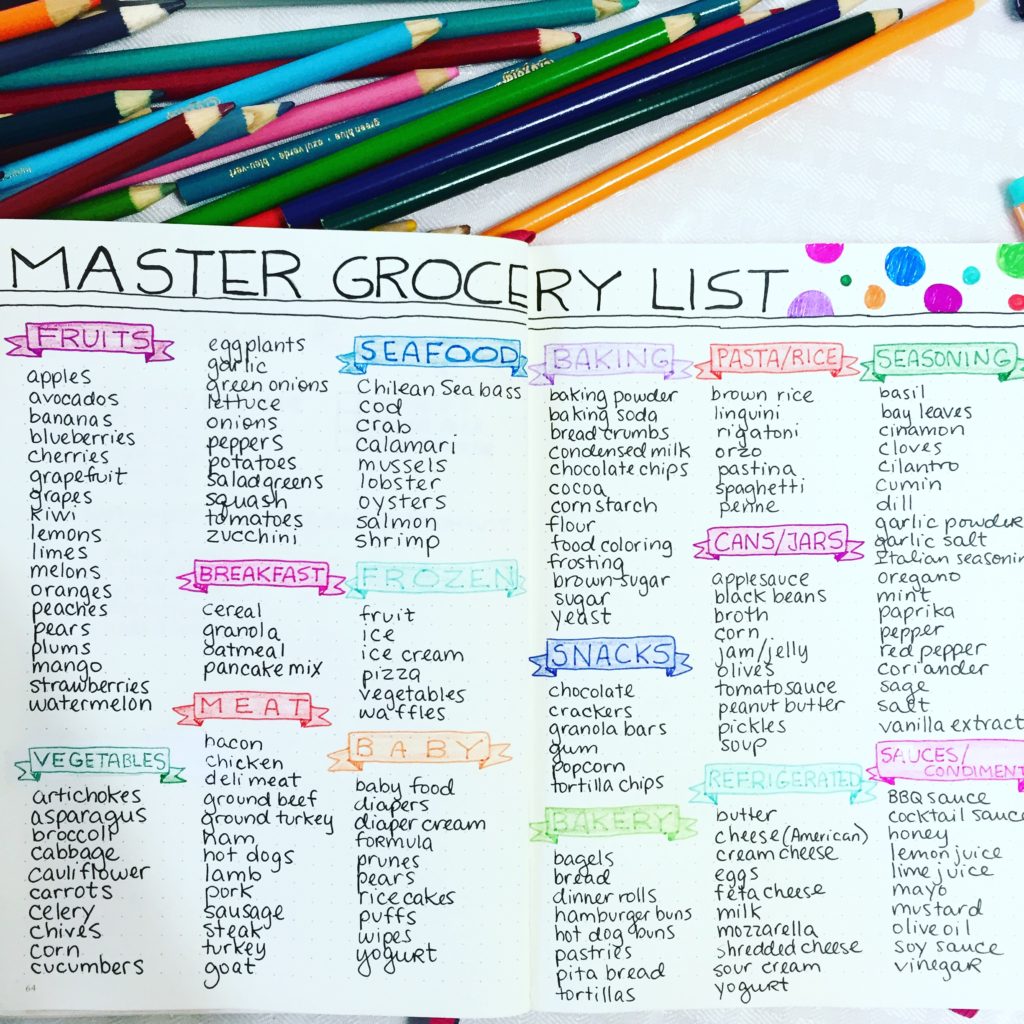 green blue • azul verde • bleu-vert
MASTER GROCERY LIST
FRUITS
apples
avocados
bananas
blueberries
cherries
grapefruit
grapes
kiwi
lemons
limes
melons
oranges
peaches
pears
plums
mango
strawberries
watermelon
VEGETABLES
artichokes
asparagus
broccoli
cabbage
cauliflower
carrots
celery
chives
corn
cucumbers
64
eggplants
garlic
green onions
lettuce
onions
peppers
potatoes
salad greens
squash
tomatoes
zucchini
BREAKFAST
cereal
granola
oatmeal
pancake mix
MEAT
bacon
chicken
deli meat
ground beef
ground turkey
ham
hot dogs
lamb
pork
sausage
steak
turkey
goat
SEAFOOD
Chilean Sea bass
cod
crab
calamari
mussels
lobster
oysters
salmon
shrimp
FROZEN
fruit
ice
ice cream
pizza
vegetables
waffles
BABY
baby food
diapers
diaper cream
formula
prunes
pears
rice cakes
puffs
wipes
yogurt
BAKING
baking powder
baking soda
bread crumbs
condensed milk
chocolate chips
cocoa
corn starch
flour
food coloring
frosting
brown sugar
sugar
yeast
SNACKS
chocolate
crackers
granola bars
gum
popcorn
tortilla chips
BAKERY
bagels
bread
dinner rolls
hamburger buns
hot dog buns
pastries
pita bread
tortillas
PASTA/RICE
brown rice
linguini
rigatoni
orzo
pastina
spaghetti
penne
CANS/JARS
applesauce
black beans
broth
corn
jam/jelly
olives
tomato sauce
peanut butter
pickles
soup
REFRIGERATED
butter
cheese (American)
cream cheese
eggs
feta cheese
milk
mozzarella
shredded cheese
sour cream
yogurt
SEASONING
basil
bay leaves
cinamon
cloves
cilantro
cumin
dill
garlic powder
garlic salt
Italian seasonin
oregano
mint
paprika
pepper
red pepper
coriander
sage
salt
vanilla extract
SAUCES/
CONDIMENT
BBQ sauce
cocktail sauce
honey
lemon juice
lime juice
mayo
mustard
olive oil
soy sauce
vinegar